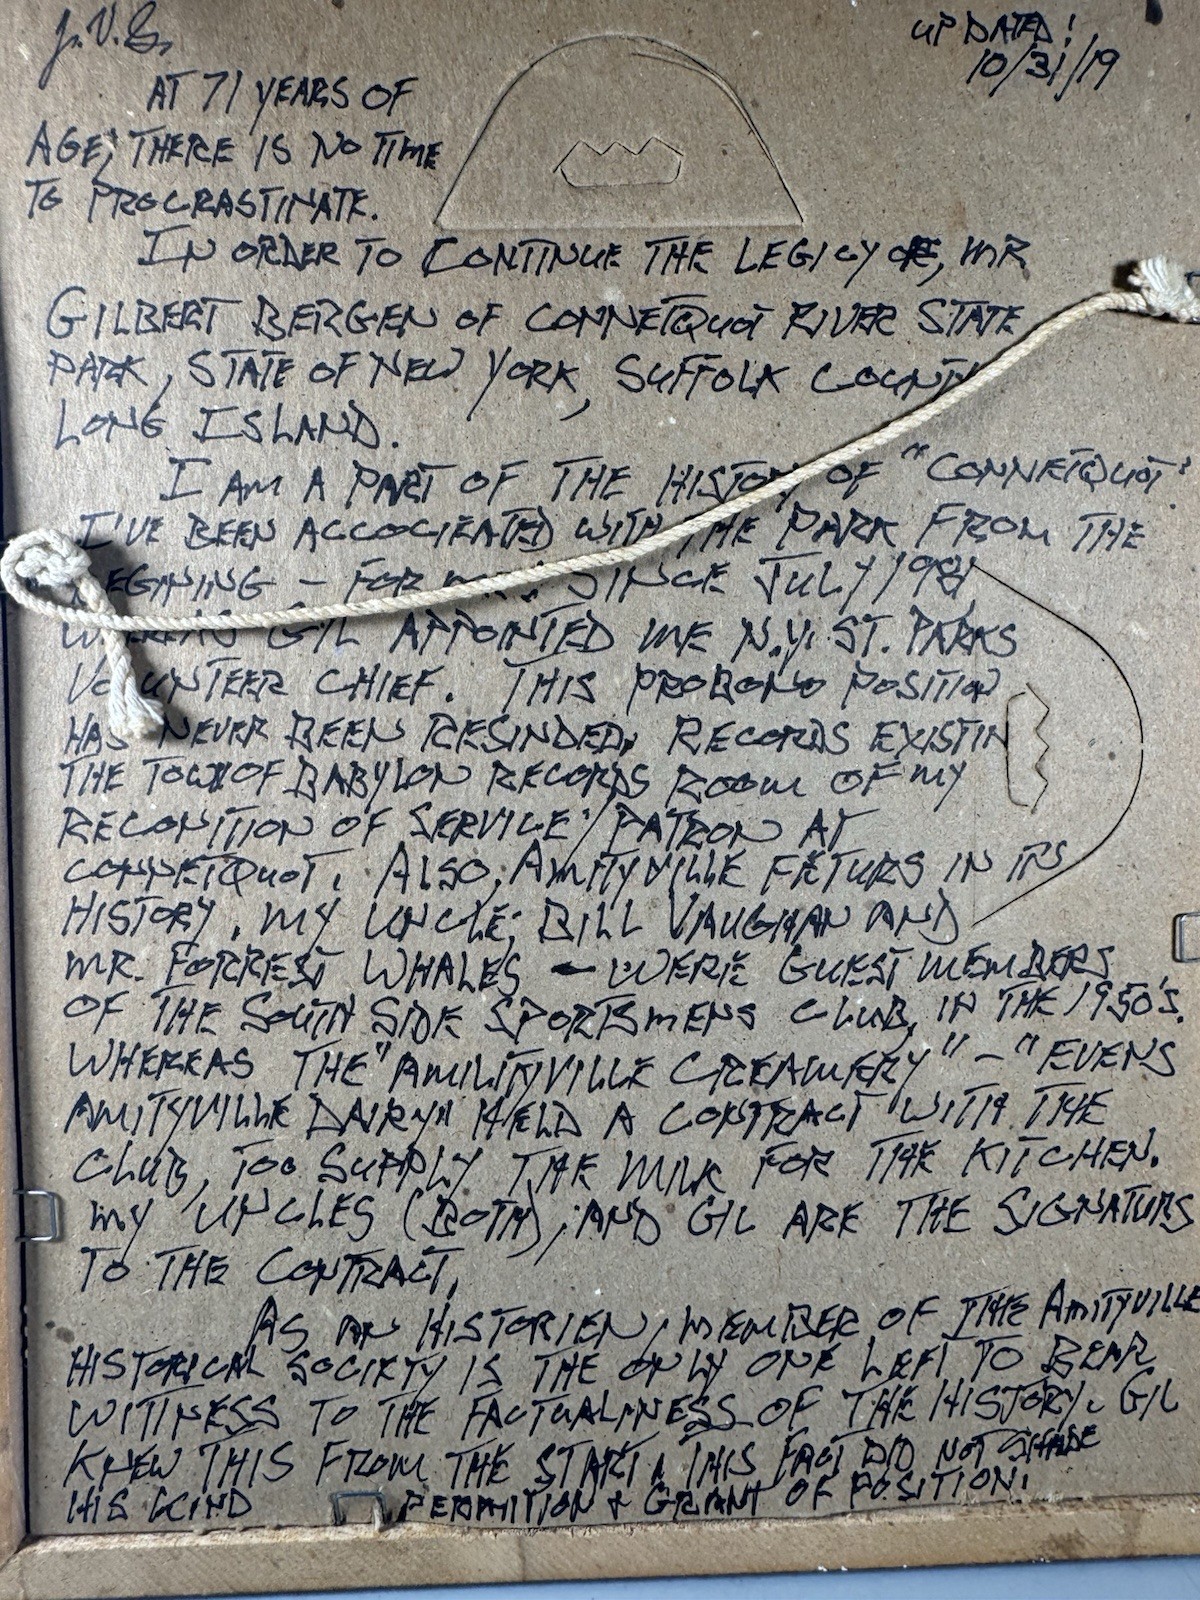 J.V.S.
UP DATED!
10/31/19
AT 71 YEARS OF
AGE, THERE IS NO TIME
TO PROCRASTINATE.
IN ORDER TO CONTINUE THE LEGICY OF, MR
GILBERT BERGEN OF CONNETQUOT RIVER STATE
PARK, STATE OF NEW YORK, SUFFOLK COUNTY
LONG ISLAND.
I AM A PART OF THE HISTORY OF "CONNETQUOT".
I'VE BEEN ACCOCIEATED WITH THE PARK FROM THE
BEGINING – FOR SINCE JULY 1981
WHEREAS GIL APPOINTED ME N.Y. ST. PARKS
VOLUNTEER CHIEF. THIS PROBONO POSITION
HAS NEVER BEEN RESINDED, RECORDS EXIST IN
THE TOWN OF BABYLON RECORDS ROOM OF MY
RECONITION OF SERVICE/PATRON AT
CONNETQUOT. ALSO, AMITYVILLE FETURS IN ITS
HISTORY. MY UNCLE; BILL VAUGHAN AND
MR. FORREST WHALES – WERE GUEST MEMBERS
OF THE SOUTH SIDE SPORTSMENS CLUB, IN THE 1950'S.
WHEREAS THE "AMILITYVILLE CREAMERY" – "EVENS
AMITYVILLE DAIRY" HELD A CONTRACT WITH THE
CLUB, TOO SUPPLY THE MILK FOR THE KITCHEN.
MY UNCLES (BOTH), AND GIL ARE THE SIGNATURS
TO THE CONTRACT.
AS AN HISTORIEN, MEMBER OF THE AMITYVILLE
HISTORICAL SOCIETY IS THE ONLY ONE LEFT TO BEAR
WITTNESS TO THE FACTUALNESS OF THE HISTORY. GIL
KNEW THIS FROM THE START. THIS FACT DID NOT SHADE
HIS KIND PERMITION & GRANT OF POSITION.